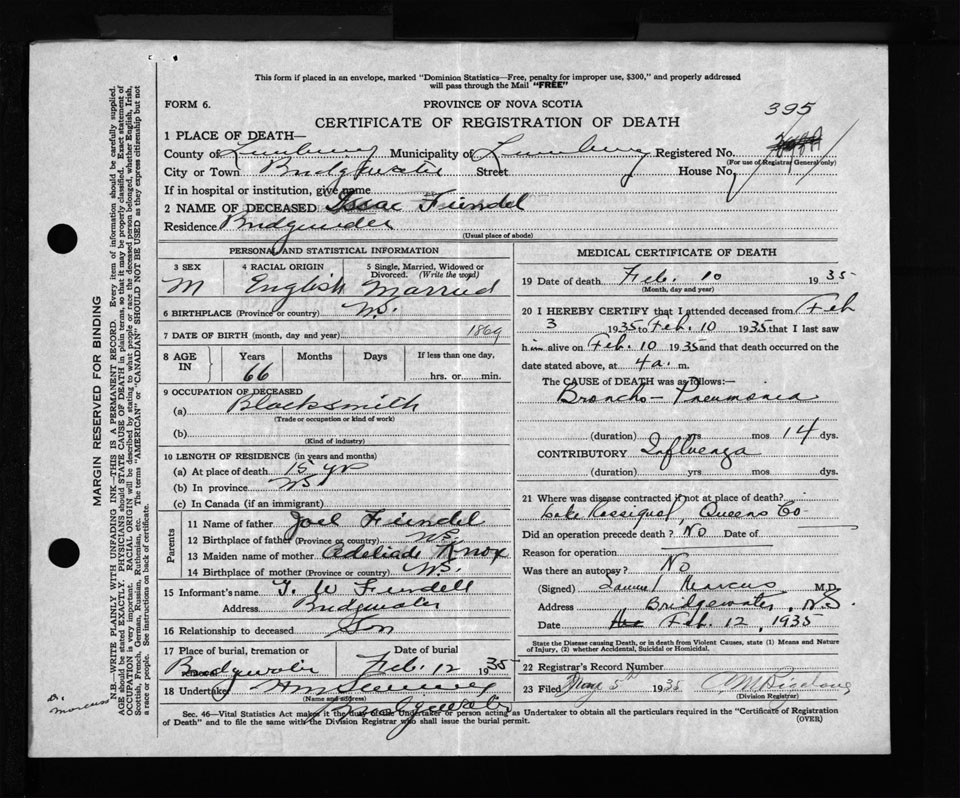 This form if placed in an envelope, marked "Dominion Statistics—Free, penalty for improper use, $300," and properly addressed
will pass through the Mail "FREE"
FORM 6.
PROVINCE OF NOVA SCOTIA
395
CERTIFICATE OF REGISTRATION OF DEATH
1 PLACE OF DEATH—
County of Lunenburg Municipality of Lunenburg Registered No.
(For use of Registrar General only)
City or Town Bridgewater Street House No.
If in hospital or institution, give name
2 NAME OF DECEASED Issac Feindel
Residence Bridgewater
(Usual place of abode)
PERSONAL AND STATISTICAL INFORMATION
3 SEX 4 RACIAL ORIGIN 5 Single, Married, Widowed or
Divorced. (Write the word)
M English Married
6 BIRTHPLACE (Province or country) N.S.
7 DATE OF BIRTH (month, day and year) 1869
8 AGE IN Years Months Days If less than one day,
66 hrs. or min.
9 OCCUPATION OF DECEASED
(a) Blacksmith
(Trade or occupation or kind of work)
(b)
(Kind of industry)
10 LENGTH OF RESIDENCE (in years and months)
(a) At place of death 15 yrs
(b) In province NS
(c) In Canada (if an immigrant)
Parents
11 Name of father Joel Feindel
12 Birthplace of father (Province or country) N.S.
13 Maiden name of mother Adeliade Knox
14 Birthplace of mother (Province or country) N.S.
15 Informant's name Feindell
Address Bridgewater
16 Relationship to deceased Son
17 Place of burial, cremation or Date of burial
Bridgewater Feb. 12 1935
18 Undertaker
(Name and address)
Bridgewater
MEDICAL CERTIFICATE OF DEATH
19 Date of death Feb. 10 1935
(Month, day and year)
20 I HEREBY CERTIFY that I attended deceased from Feb
3 1935 to Feb. 10 1935 that I last saw
him alive on Feb. 10 1935 and that death occurred on the
date stated above, at 4 a. m.
The CAUSE of DEATH was as follows:—
Broncho-Pneumonia
(duration) yrs mos 14 dys.
CONTRIBUTORY Influenza
(duration) yrs mos dys.
21 Where was disease contracted if not at place of death?
Lake Rossignol, Queens Co
Did an operation precede death? No Date of
Reason for operation
Was there an autopsy? No
(Signed) Marcus M.D.
Address Bridgewater, N.S.
Date Feb. 12, 1935
State the Disease causing Death, or in death from Violent Causes, state (1) Means and Nature
of Injury, (2) whether Accidental, Suicidal or Homicidal.
22 Registrar's Record Number
23 Filed 5th 1935
(Division Registrar)
Sec. 46—Vital Statistics Act makes it the duty of the Undertaker or person acting as Undertaker to obtain all the particulars required in the "Certificate of Registration
of Death" and to file the same with the Division Registrar who shall issue the burial permit.
(OVER)
MARGIN RESERVED FOR BINDING
N.B.—WRITE PLAINLY WITH UNFADING INK—THIS IS A PERMANENT RECORD. Every item of information should be carefully supplied.
AGE should be stated EXACTLY. PHYSICIANS should STATE CAUSE OF DEATH in plain terms, so that it may be properly classified. Exact statement of
OCCUPATION is very important. RACIAL ORIGIN will be described by stating to what people or race the deceased person belonged, whether English, Irish,
Scottish, French, German, Russian, Ruthenian, etc. The terms "AMERICAN" or "CANADIAN" SHOULD NOT BE USED as they express citizenship but not
a race or people. See instructions on back of certificate.
Dr.
Marcus